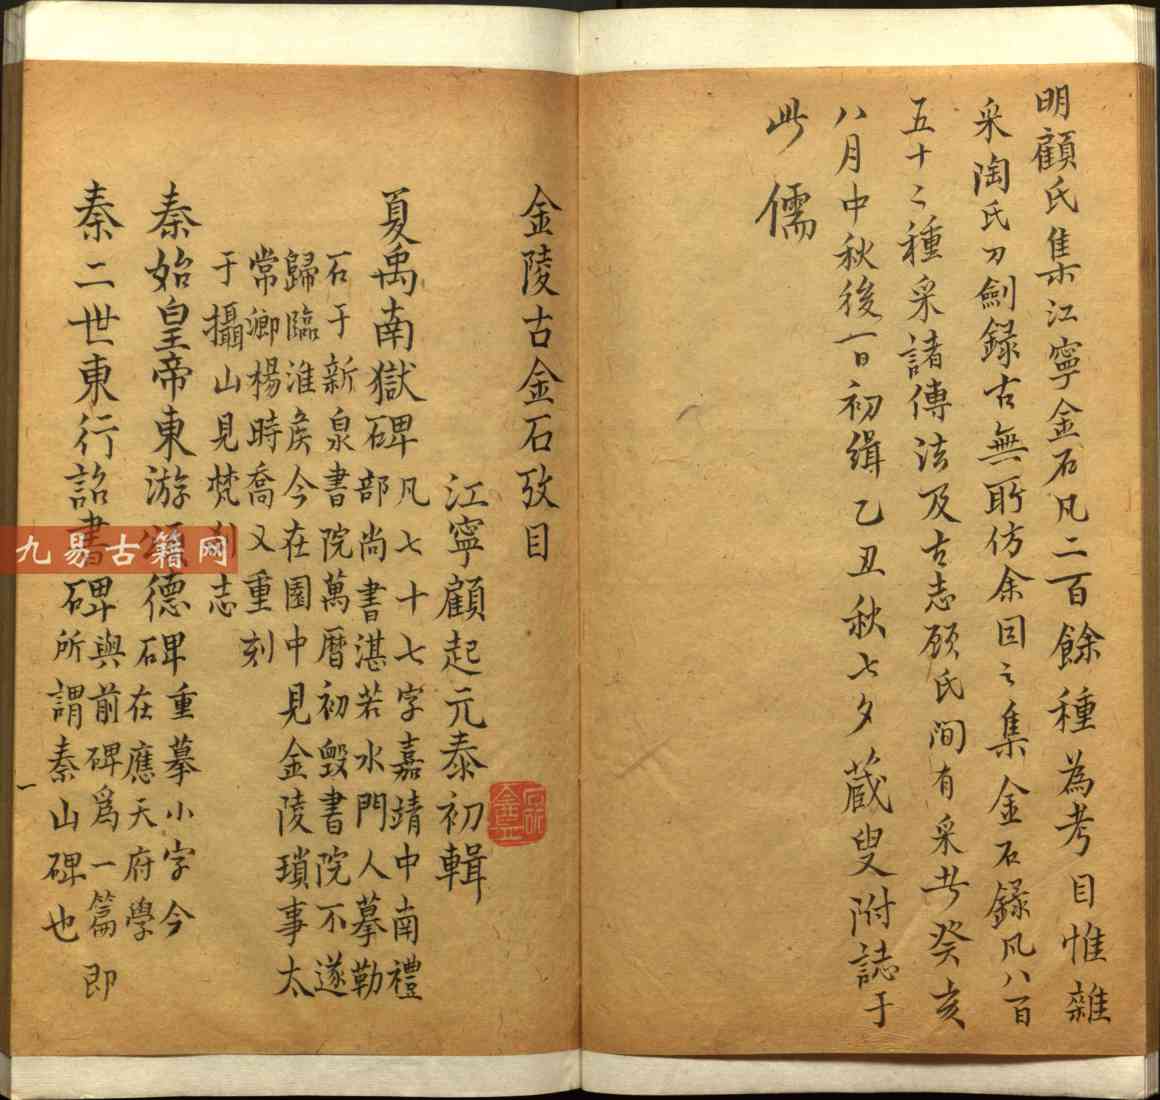 明顧氏集江寧金石凡二百餘種為考目惟雜
采陶氏刀劍録古無所仿余因之集金石錄凡八百
五十二種采諸傳法及古志顾氏间有采者癸亥
八月中秋後一日初緝乙丑秋七夕蔵叟附誌于
此儒
金陵古金石攷目
江寧顧起元泰初輯
夏禹南嶽碑凡七十七字嘉靖中南禮
部尚書湛若水門人摹勒
石于新泉書院萬曆初毀書院不遂
歸臨淮矦今在園中見金陵瑣事太
常卿楊時喬又重刻
于攝山見梵刹志
秦始皇帝東游頌德碑重摹小字今
石在應天府學
秦二世東行詔書碑與前碑爲一篇即
石所謂秦山碑也
一
九易古籍网